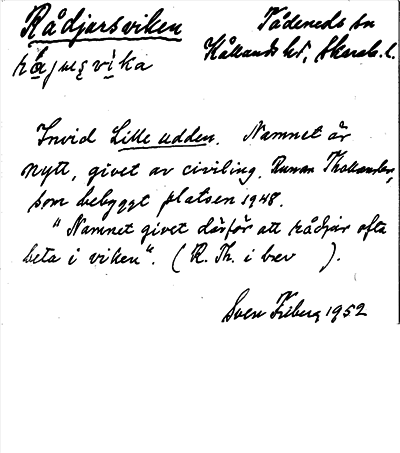 Rådjursviken
Tådeneds sn
Kållands hd, Skarab. l.
Invid Lille udden. Namnet är
nytt, givet av civiling. Runar Thollander,
som bebyggt platsen 1948.
"Namnet givet därför att rådjur ofta
beta i viken". (R. Th. i brev ).
Sven Friberg 1952